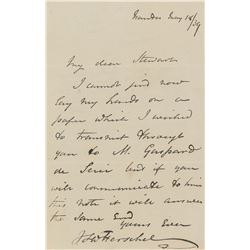 May 18/39
My dear Stewart
I cannot just now
lay my hands on a
paper which I wished
to transmit through
you to M. Gaspard
de but if you
will communicate to him
this note it will answer
the same End
Yours Ever
JFWHerschel